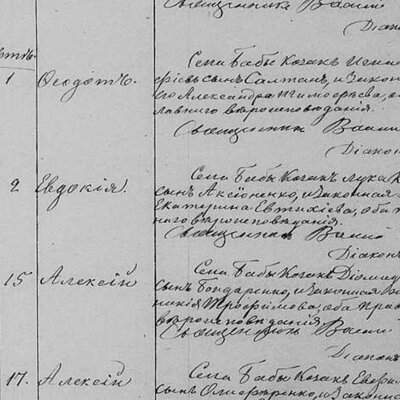 Священникъ Васи
Діакон
Мартъ.
1 Ѳеодотъ. Села Бабы Козакъ
сынъ Салтан, и закон
его Александра Тимофѣева, о
славнаго вѣроисповѣданія.
Священникъ Васи
Діакон
2 Евдокія. Села Бабы Козакъ Лука
сынъ Аксіоненко, и законная
Екатерина Евтихіева, оба
наго вѣроисповѣданія.
Священникъ Васи
Діакон
15 Алексій Села Бабы Козакъ Діомид
сынъ Бондаренко, и законная
Трофимова, оба пра
вѣроисповѣданія
Священникъ Васи
Діакон
17. Алексій Села Бабы Козакъ
сынъ и законна